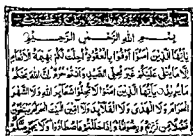 بِسْمِ اللهِ الرَّحْمٰنِ الرَّحِيْمِ
يٰٓاَيُّهَا الَّذِيْنَ اٰمَنُوْٓا اَوْفُوْا بِالْعُقُوْدِ اُحِلَّتْ لَكُمْ بَهِيْمَةُ الْاَنْعَامِ
اِلَّا مَا يُتْلٰى عَلَيْكُمْ غَيْرَ مُحِلِّى الصَّيْدِ وَاَنْتُمْ حُرُمٌ اِنَّ اللهَ يَحْكُمُ
مَا يُرِيْدُ يٰٓاَيُّهَا الَّذِيْنَ اٰمَنُوْا لَا تُحِلُّوْا شَعَآئِرَ اللهِ وَلَا الشَّهْرَ
الْحَرَامَ وَلَا الْهَدْىَ وَلَا الْقَلَآئِدَ وَلَآ اٰمِّيْنَ الْبَيْتَ الْحَرَامَ يَبْتَغُوْنَ
فَضْلًا مِّنْ رَّبِّهِمْ وَرِضْوَانًا وَاِذَا حَلَلْتُمْ فَاصْطَادُوْا وَلَا يَجْرِمَنَّكُمْ